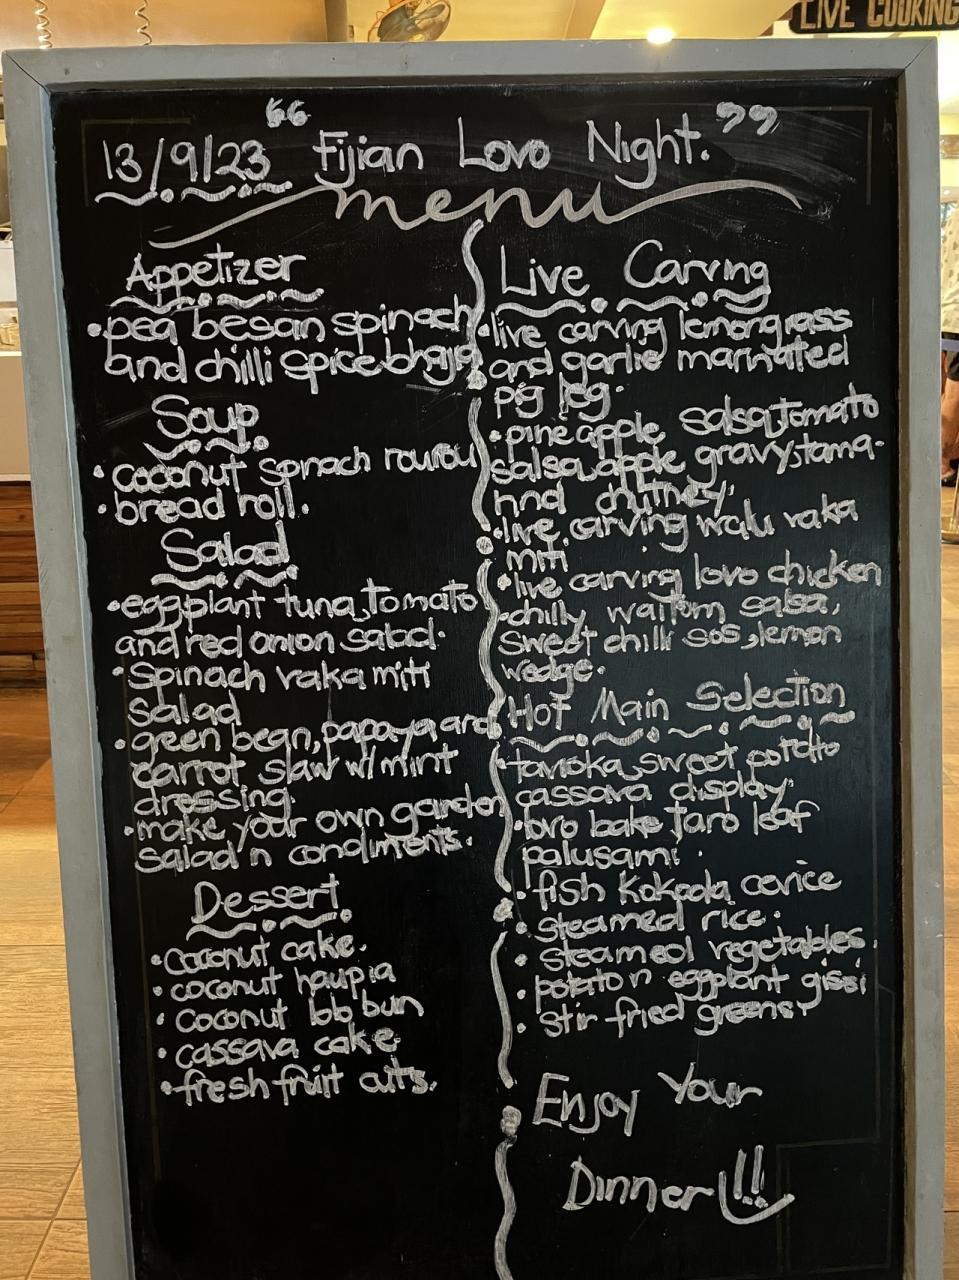 LIVE COOKING
13/9/23 "Fijian Lovo Night."
menu
Appetizer
• pea besan spinach
and chilli spice bhajia
Soup
• coconut spinach rourou
• bread roll.
Salad
• eggplant tuna, tomato
and red onion salad.
• Spinach vaka miti
salad
• green bean, papaya and
carrot slaw w/ mint
dressing.
• make your own garden
salad n condiments.
Dessert
• coconut cake.
• coconut haupia
• coconut bb bun
• cassava cake
• fresh fruit cuts.
Live Carving
• live carving lemongrass
and garlic marinated
pig leg.
• pineapple salsa, tomato
salsa, apple gravy, tama-
rind chutney,
• live carving walu vaka
miti
• live carving lovo chicken
chilly waitom salsa,
sweet chilli sos, lemon
wedge.
Hot Main Selection
• tavioka, sweet potato
cassava display
• lovo bake taro leaf
palusami.
• fish Kokoda cevice
• steamed rice.
• steamed vegetables.
• potato n eggplant gissi
• stir fried greens,
Enjoy Your
Dinner!!!